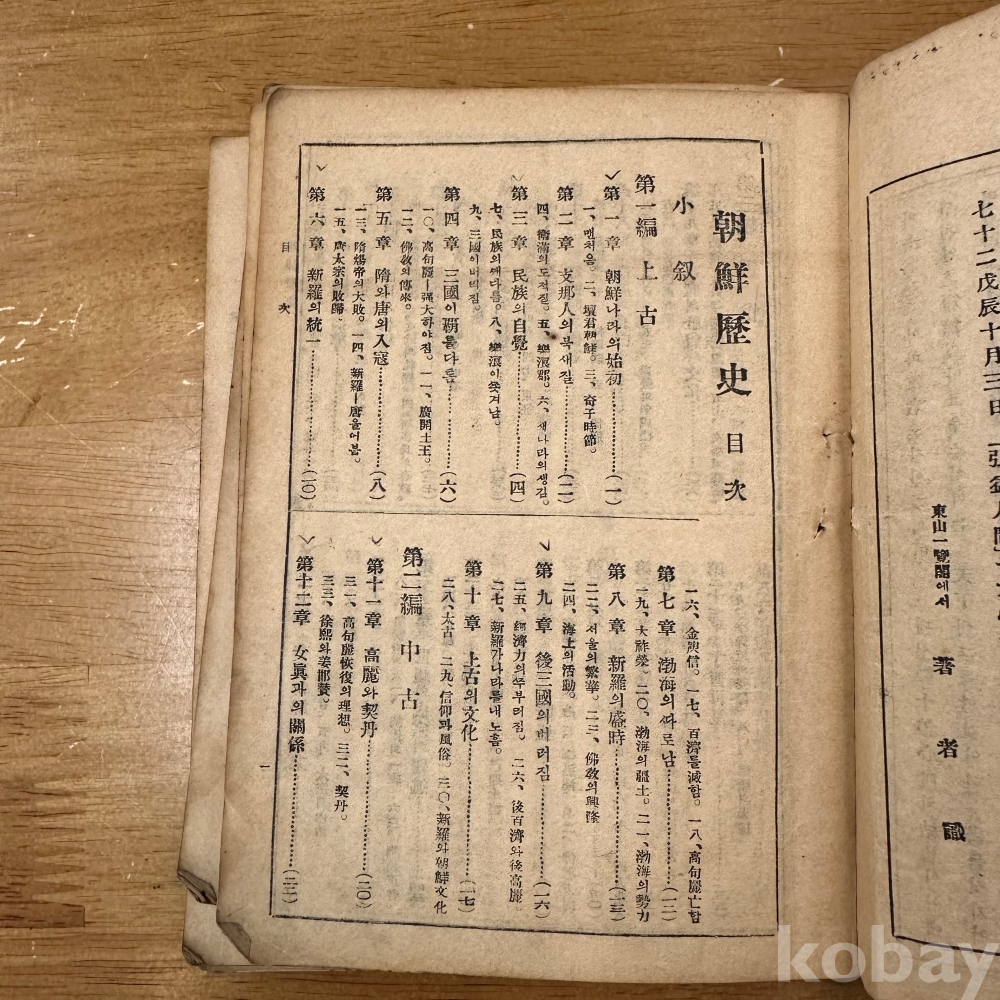 七十二戊辰十月三日
東山一覽閣에서
著者識
朝鮮歷史 目次
小叙
第一編 上古
第一章 朝鮮나라의始初……(一)
一、맨처음。二、壇君朝鮮。三、奇子時節。
第二章 支那人의북새질……(二)
四、衛滿의도적질。五、樂浪郡。六、새나라의생김。
第三章 民族의自覺……(四)
七、民族의깨다름。八、樂浪이쫏겨남。
九、三國이버띄짐。
第四章 三國이覇를다톰……(六)
一〇、高句麗ㅣ强大하야짐。一一、廣開土王。
一二、佛敎의傳來。
第五章 隋와唐의入寇……(八)
一三、隋煬帝의大敗。一四、新羅ㅣ唐을어붐。
一五、唐太宗의敗歸。
第六章 新羅의統一……(一〇)
一六、金庾信。一七、百濟를滅함。一八、高句麗亡함
第七章 渤海의따로남……(一二)
一九、大祚榮。二〇、渤海의疆土。二一、渤海의勢力
第八章 新羅의盛時……(一三)
二二、서울의繁華。二三、佛敎의興隆
二四、海上의活動。
第九章 後三國의버러짐……(一六)
二五、經濟力의쭈부러짐。二六、後百濟와後高麗。
二七、新羅가나라를내노흠。
第十章 上古의文化……(一七)
二八、太古 二九、信仰과風俗。三〇、新羅와朝鮮文化
第二編 中古
第十一章 高麗와契丹……(二〇)
三一、高句麗恢復의理想。三二、契丹。
三三、徐熙와姜邯贊。
第十二章 女眞과의關係……(二三)
目次
一
kobay